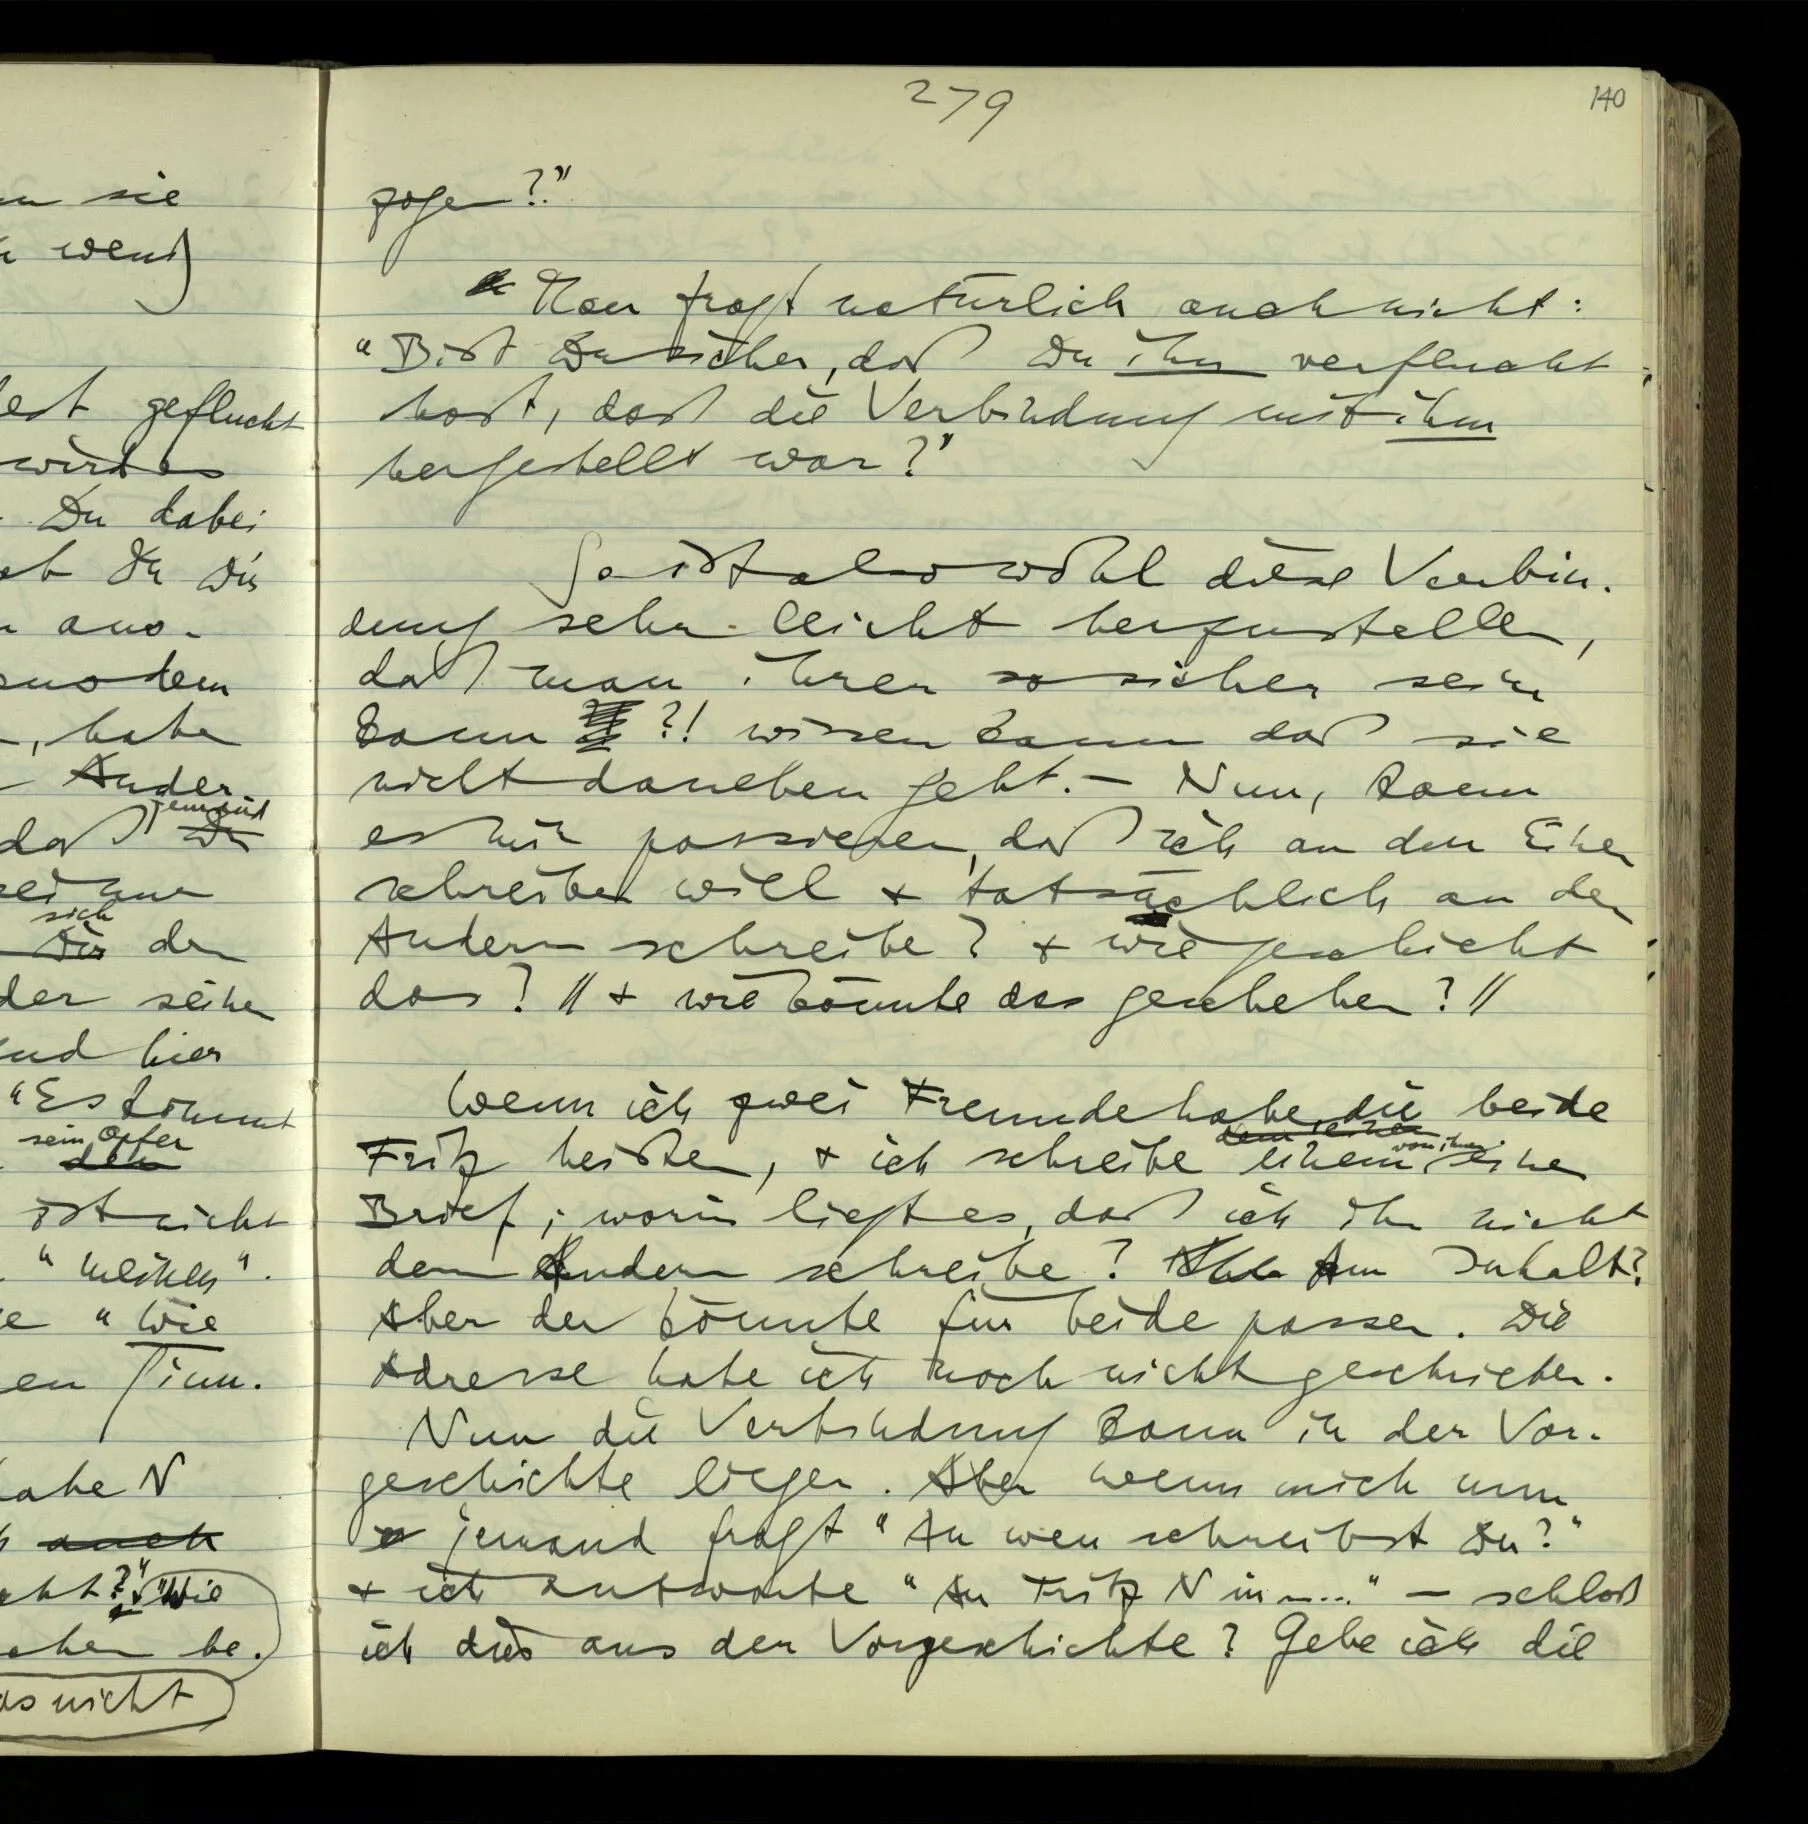 279
140
zogen?"
Man fragt natürlich auch nicht:
"Bist Du sicher, daß Du ihn verflucht
hast, daß die Verbindung mit ihm
hergestellt war?"
So ist also wohl diese Verbin-
dung sehr leicht herzustellen,
daß man ihrer so sicher sein
kann ?! wissen kann daß sie
nicht daneben geht. – Nun, kann
es mir passieren, daß ich an den Einen
schreiben will & tatsächlich an den
Andern schreibe? & wie geschieht
das? // & wie könnte das geschehen? //
Wenn ich zwei Freunde habe, die beide
dem einen
Fritz heißen, & ich schreibe einem von ihnen einen
Brief; worin liegt es, daß ich ihn nicht
dem Andern schreibe? Am Inhalt?
Aber der könnte für beide passen. Die
Adresse habe ich noch nicht geschrieben.
Nun die Verbindung kann in der Vor-
geschichte liegen. Aber wenn mich nun
jemand fragt "An wen schreibst Du?"
& ich antworte "An Fritz N in ....." – schloß
ich dies aus der Vorgeschichte? Gebe ich die
sie
wenn
geflucht
wird es
Du dabei
ob Du Dir
aus-
aus dem
, habe
Ander-
jemand
daß Du
sich
Dir den
der seinen
und hier
"Es kommt
sein Opfer
den
ist nicht
"meinen".
"wie
en Sinn.
habe N
auch
?" "Wie
be-
das nicht